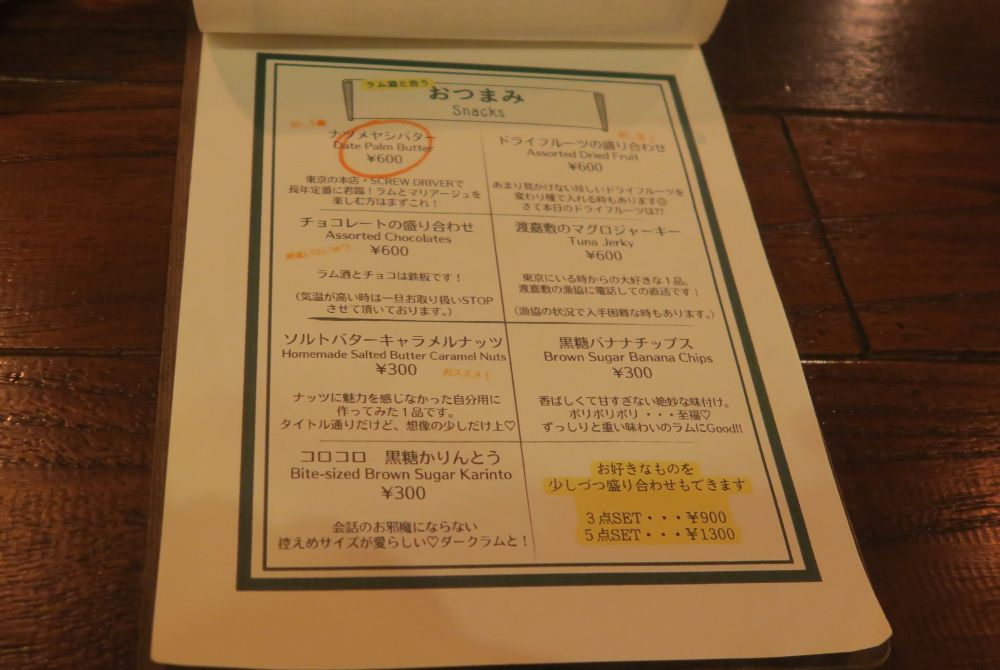 ラム酒と合う
おつまみ
Snacks
ナツメヤシバター
Date Palm Butter
¥600
東京の本店・SCREW DRIVERで
長年定番に君臨！ラムとマリアージュを
楽しむ方はまずこれ！
ドライフルーツの盛り合わせ
Assorted Dried Fruit
¥600
あまり見かけない珍しいドライフルーツを
変わり種で入れる時もあります☺
さて本日のドライフルーツは??
チョコレートの盛り合わせ
Assorted Chocolates
¥600
間違いないやつ
ラム酒とチョコは鉄板です！
（気温が高い時は一旦お取り扱いSTOP
させて頂いております。）
渡嘉敷のマグロジャーキー
Tuna Jerky
¥600
東京にいる時からの大好きな１品。
渡嘉敷の漁協に電話しての直送です！
（漁協の状況で入手困難な時もあります。）
ソルトバターキャラメルナッツ
Homemade Salted Butter Caramel Nuts
¥300
おススメ！
ナッツに魅力を感じなかった自分用に
作ってみた１品です。
タイトル通りだけど、想像の少しだけ上♡
黒糖バナナチップス
Brown Sugar Banana Chips
¥300
香ばしくて甘すぎない絶妙な味付け。
ボリボリボリ・・・至福♡
ずっしりと重い味わいのラムにGood!!
コロコロ　黒糖かりんとう
Bite-sized Brown Sugar Karinto
¥300
会話のお邪魔にならない
控えめサイズが愛らしい♡ダークラムと！
お好きなものを
少しづつ盛り合わせもできます
３点SET・・・¥900
５点SET・・・¥1300